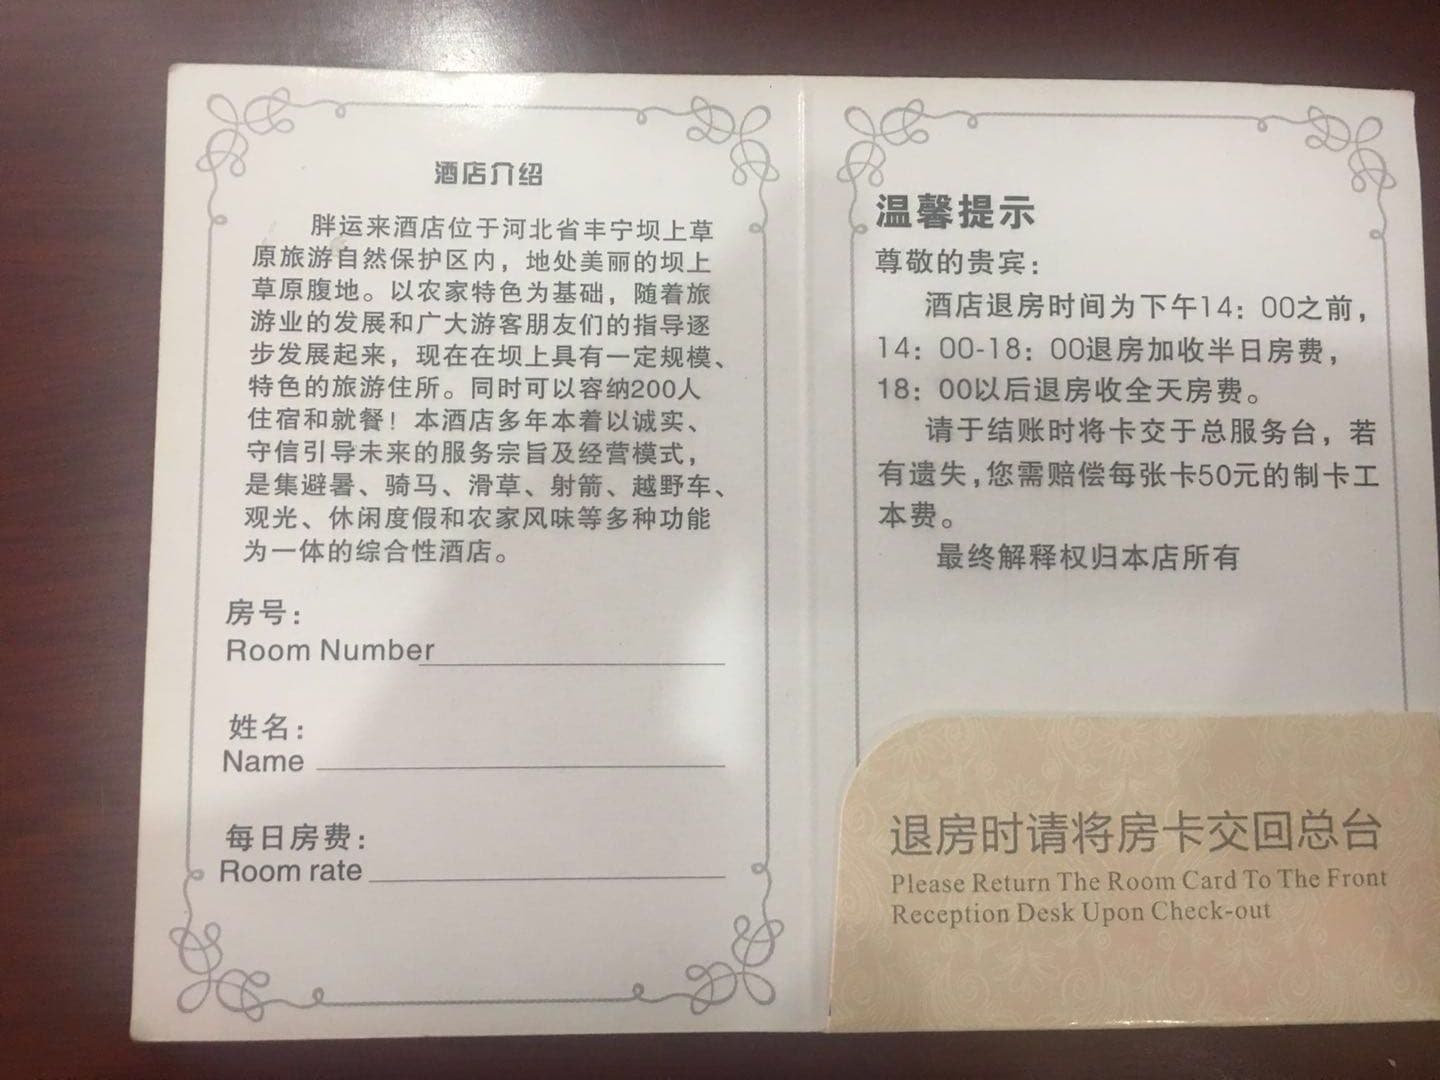 酒店介绍
胖运来酒店位于河北省丰宁坝上草
原旅游自然保护区内，地处美丽的坝上
草原腹地。以农家特色为基础，随着旅
游业的发展和广大游客朋友们的指导逐
步发展起来，现在在坝上具有一定规模、
特色的旅游住所。同时可以容纳200人
住宿和就餐！本酒店多年本着以诚实、
守信引导未来的服务宗旨及经营模式，
是集避暑、骑马、滑草、射箭、越野车、
观光、休闲度假和农家风味等多种功能
为一体的综合性酒店。
房号：
Room Number
姓名：
Name
每日房费：
Room rate
温馨提示
尊敬的贵宾：
酒店退房时间为下午14：00之前，
14：00-18：00退房加收半日房费，
18：00以后退房收全天房费。
请于结账时将卡交于总服务台，若
有遗失，您需赔偿每张卡50元的制卡工
本费。
最终解释权归本店所有
退房时请将房卡交回总台
Please Return The Room Card To The Front
Reception Desk Upon Check-out